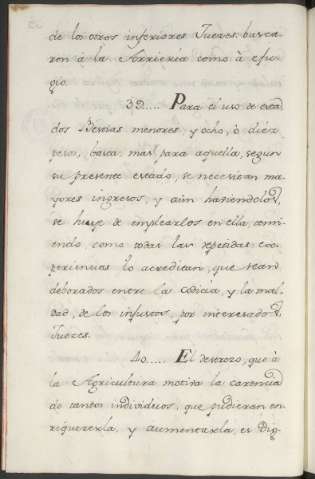 de los otros inferiores Jueces busca-
ron à la Arriería como à efu-
gio.
39.... Para el uso de esta
dos Bestias menores, y ocho, ò diez
pesos, basta; mas para aquella, segun
su presente estado, se necesitan ma-
yores ingresos, y aun haviendolos,
se huye de emplearlos en ella, temi-
endo, como todas las repetidas ex-
periencias lo acreditan, que sean
deborados entre la codicia, y la mal-
dad, de los injustos, por interesados
Jueces.
40.... El destrozo, que à
la Agricultura motiva la carencia
de tantos individuos, que pudieran en-
riquezerla, y aumentarla, es Dig-